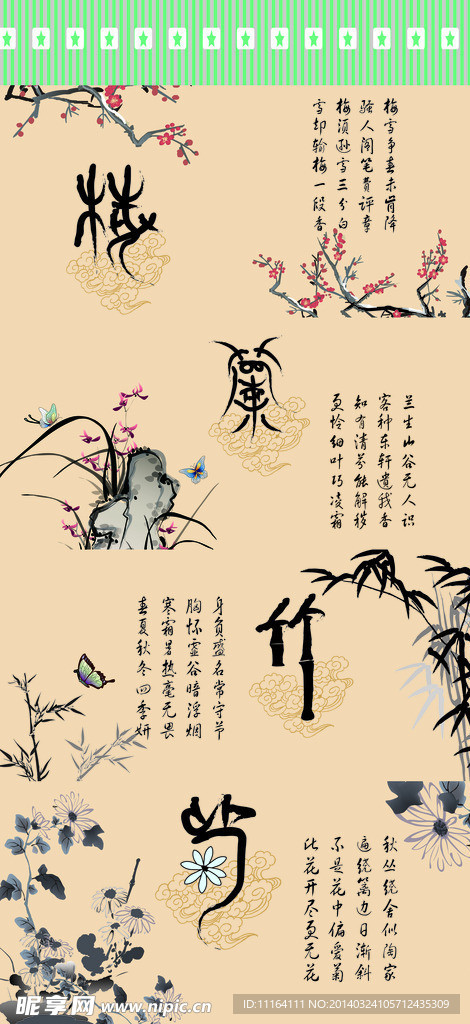 梅
梅雪争春未肯降
骚人阁笔费评章
梅须逊雪三分白
雪却输梅一段香
兰生山谷无人识
客种东轩遗我香
知有清芬能解秽
更怜细叶巧凌霜
竹
身负盛名常守节
胸怀虚谷暗浮烟
寒霜暑热毫无畏
春夏秋冬四季妍
秋丛绕舍似陶家
遍绕篱边日渐斜
不是花中偏爱菊
此花开尽更无花
昵享网 www.nipic.cn
ID:11164111 NO:20140324105712435309